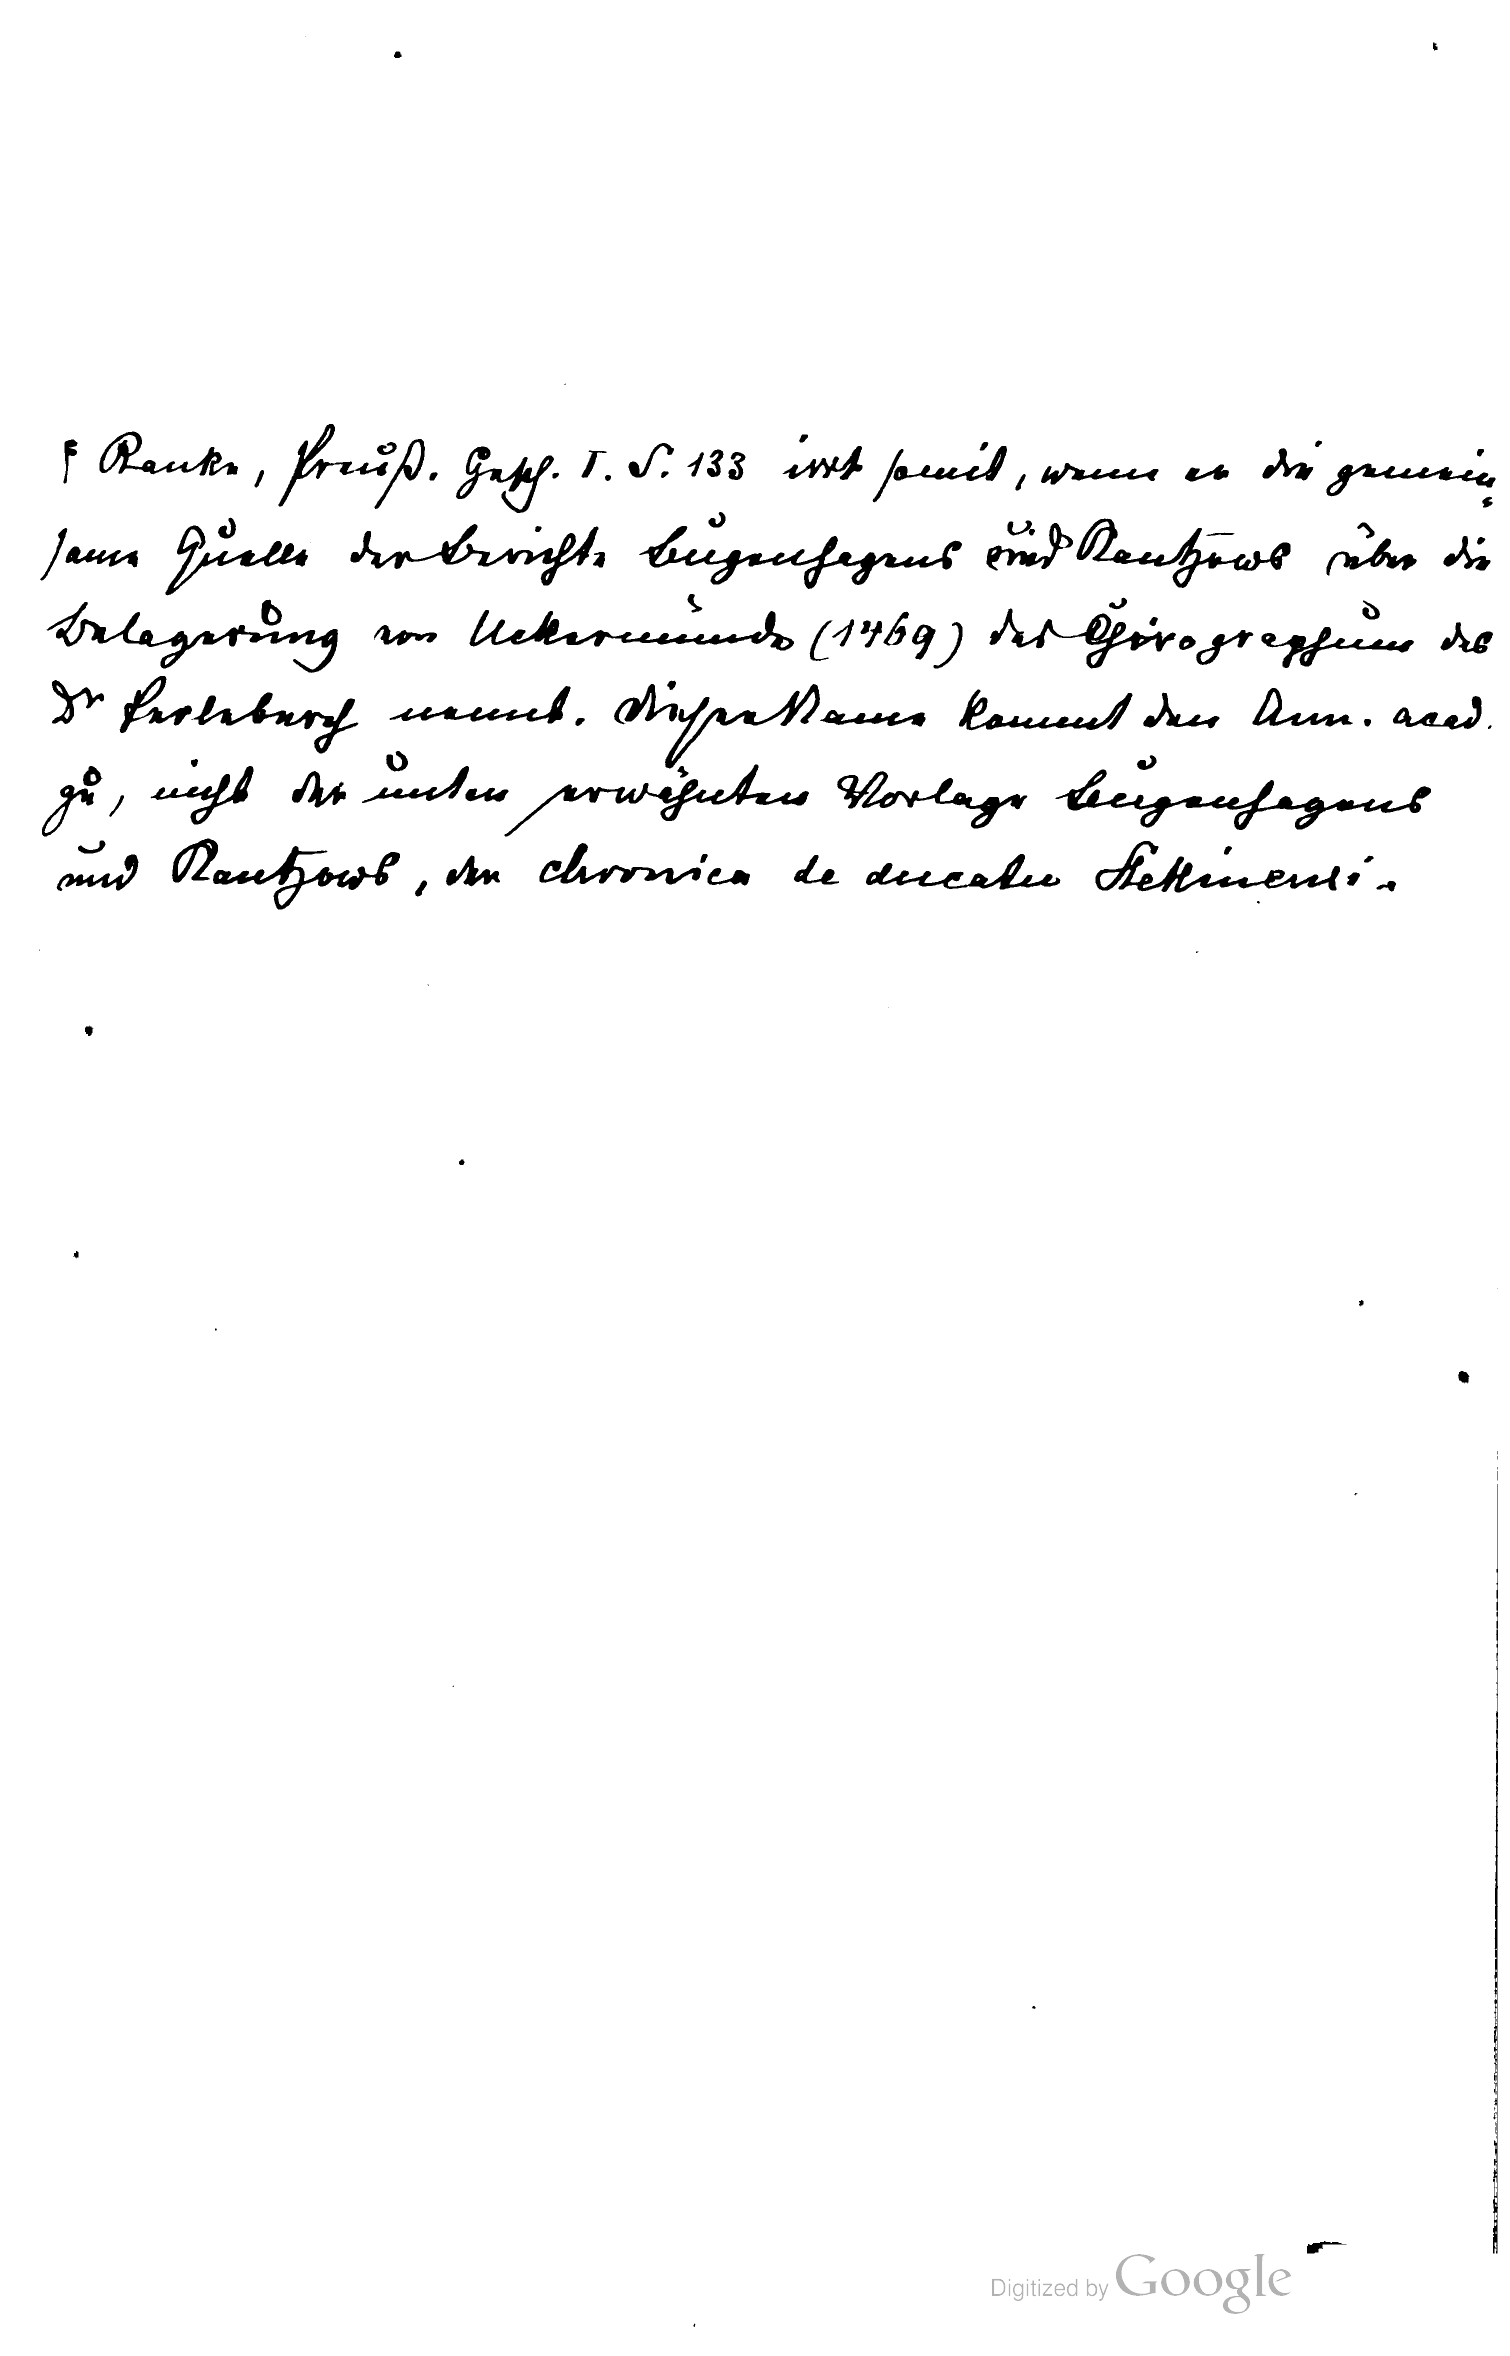 Ranke, Preuß. Gesch. I. S. 133 irrt somit, wenn er die gemein-
same Quelle der Berichte Bugenhagens und Kantzows über die
Belagerung von Uekermünde (1469) das Chirographum des
Dr Perleberch nennt. Dieser Name kommt den Ann. acad.
zu, nicht der unten erwähnten Vorlage Bugenhagens
und Kantzows, der chronica de ducatu Stettinensi.
Digitized by Google